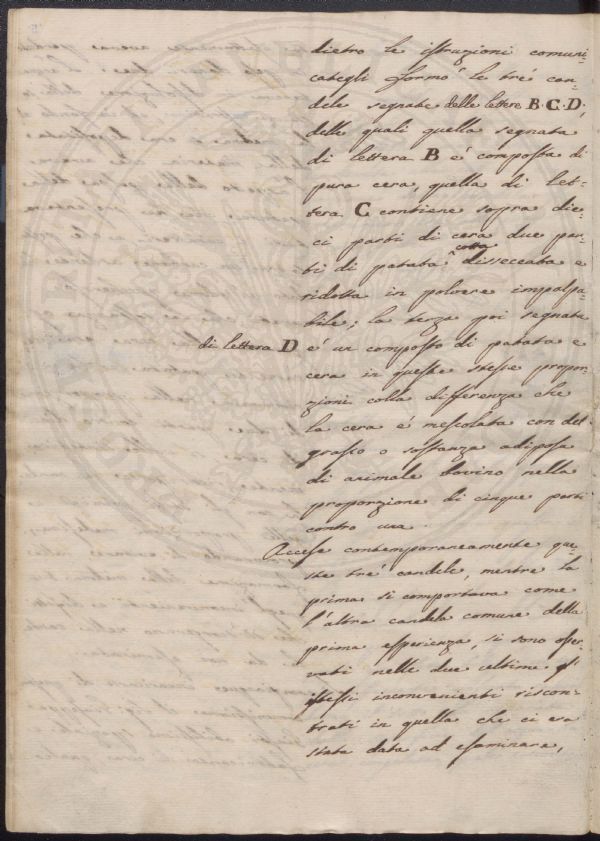 dietro le istruzioni comuni-
categli formò le tré can-
dele segnate delle lettere B. C. D;
delle quali quella segnata
di lettera B é composta di
pura cera, quella di let-
tera C contiene sopra die-
ci parti di cera due par-
ti di patata cotta disseccata e
ridotta in polvere impalpa-
bile; la terza poi segnata
di lettera D é un composto di patata e
cera in queste stesse propor-
zioni colla differenza che
la cera é mescolata con del
grasso o sostanza adiposa
di animale bovino nella
proporzione di cinque parti
contro una.
Accese contemporaneamente que-
ste tré candele, mentre la
prima si comportava come
l'altra candela comune della
prima esperienza, si sono osser-
vati nelle due ultime gl'
istessi inconvenienti riscon-
trati in quella che ci era
stata data ad esaminare,